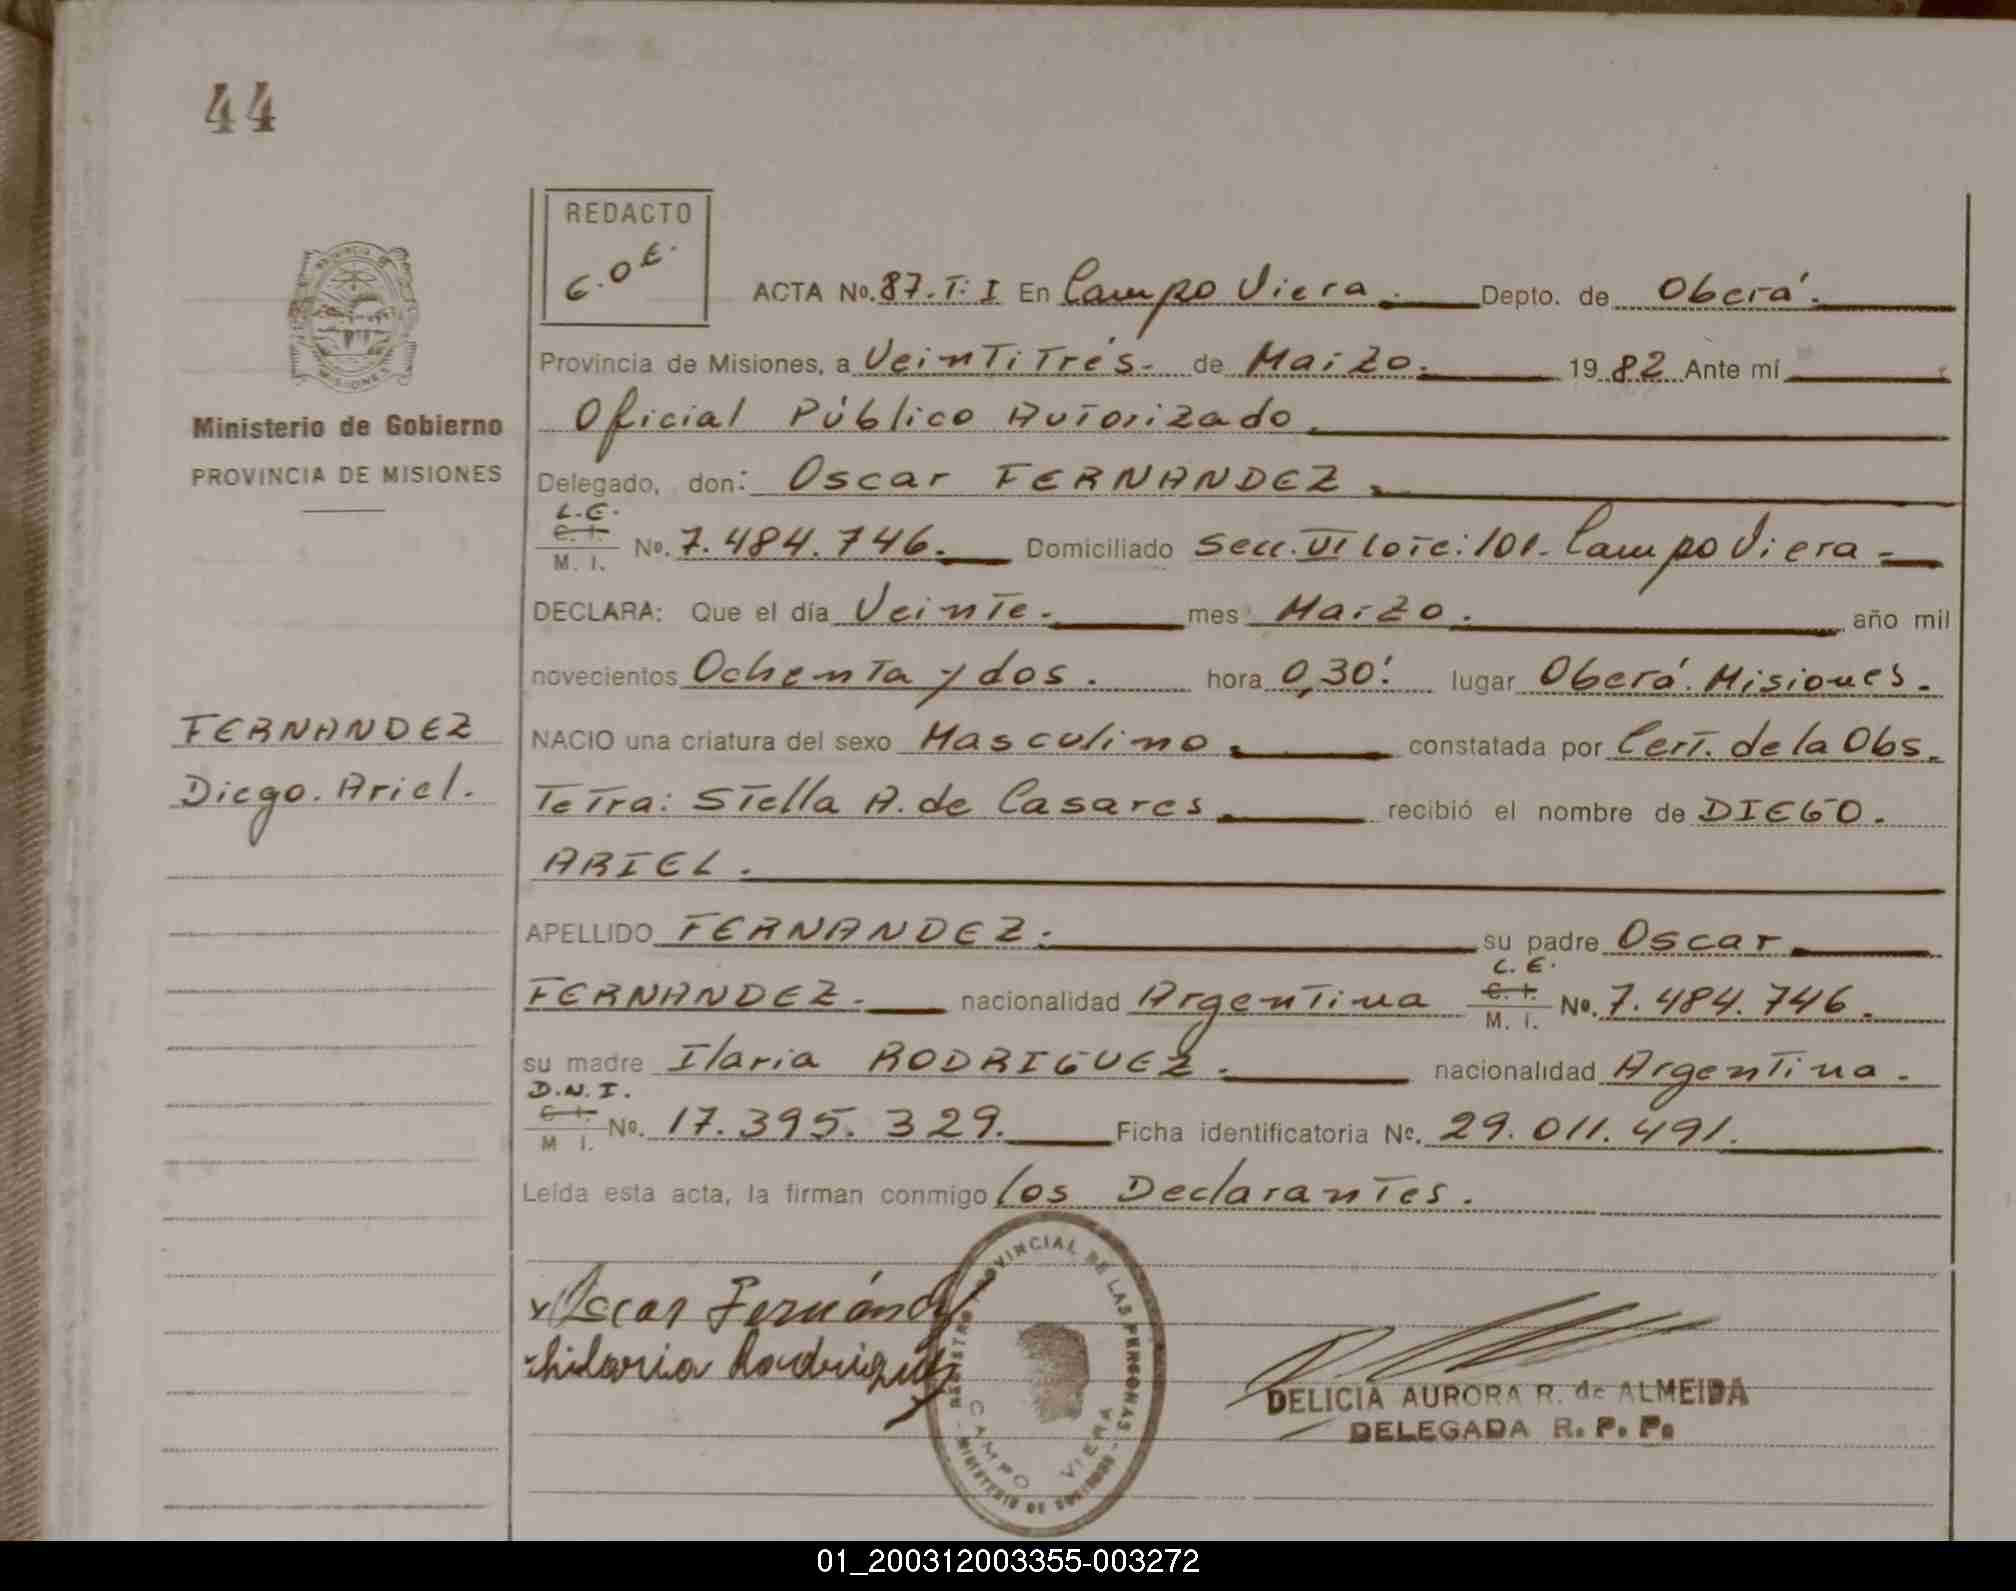 44
REDACTO
C.O.E.
ACTA No. 87. T: I En Campo Viera. Depto. de Oberá.
Provincia de Misiones, a Veintitrés. de Marzo. 1982 Ante mí
Oficial Público Autorizado.
Delegado, don: Oscar FERNANDEZ.
L.E.
C. I.
M. I. No. 7.484.746. Domiciliado Secc. VI Lote: 101. Campo Viera.
DECLARA: Que el día Veinte. mes Marzo. año mil
novecientos Ochenta y dos. hora 0,30' lugar Oberá. Misiones.
NACIO una criatura del sexo Masculino. constatada por Cert. de la Obs.
Tetra: Stella A. de Casares recibió el nombre de DIEGO.
ARIEL.
APELLIDO FERNANDEZ. su padre Oscar
FERNANDEZ. nacionalidad Argentina L.E. C. I. M. I. No. 7.484.746.
su madre Ilaria RODRIGUEZ. nacionalidad Argentina.
D.N.I.
C. I.
M I. No. 17.395.329. Ficha identificatoria No. 29.011.491.
Leída esta acta, la firman conmigo los Declarantes.
Ministerio de Gobierno
PROVINCIA DE MISIONES
FERNANDEZ
Diego. Ariel.
PROVINCIA DE
MISIONES
x Oscar Fernánd
hilaria Rodriguez
REGISTRO PROVINCIAL DE LAS PERSONAS
CAMPO VIERA
MINISTERIO DE GOBIERNO
DELICIA AURORA R. de ALMEIDA
DELEGADA R. P. P.
01_200312003355-003272